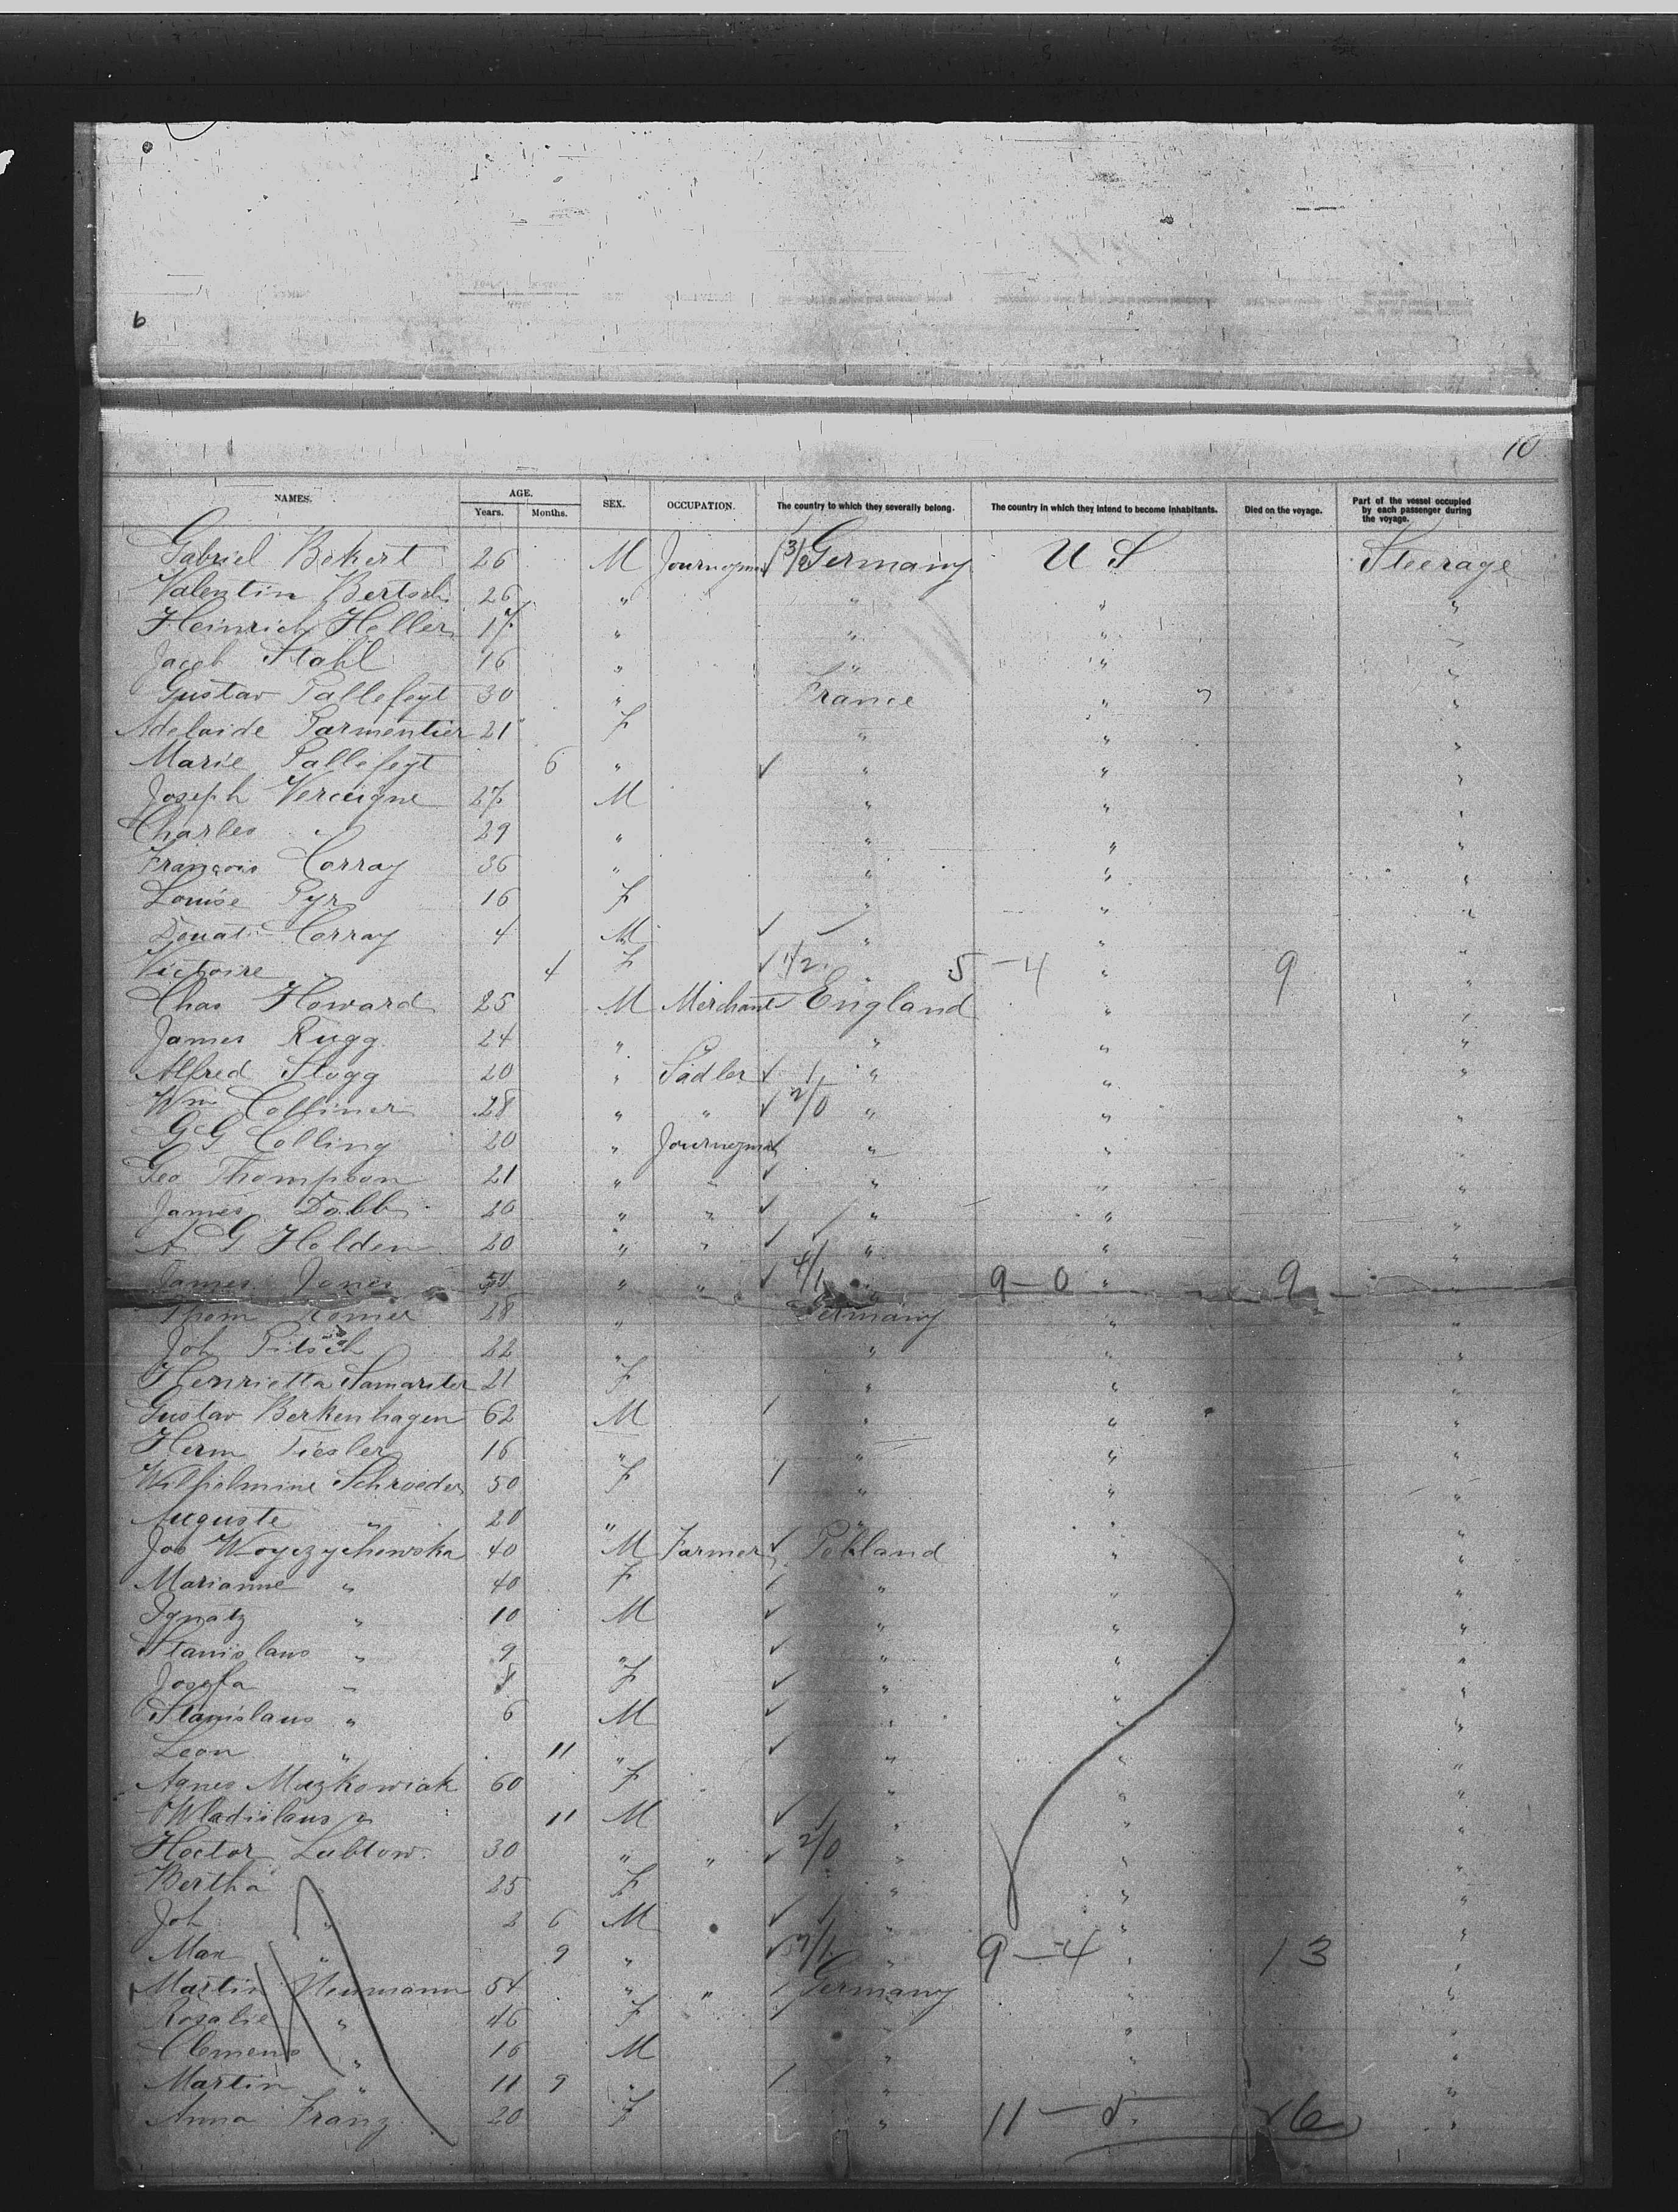 6
10
NAMES. AGE. SEX. OCCUPATION. The country to which they severally belong. The country in which they intend to become inhabitants. Died on the voyage. Part of the vessel occupied by each passenger during the voyage.
Years. Months.
Gabriel Bekert 26 M Journeyman Germany U S Steerage
Valentin Bertsch 26 " " " "
Heinrich Heller 17 " " "
Jacob Stahl 16 " " " "
Gustav Pallefeyt 30 " France " "
Adelaide Parmentier 21 F " " "
Marie Pallefeyt 6 " " " "
Joseph Vercuigne 27 M " " "
Charles " 29 " " " "
François Corray 36 " " " "
Louise Pyr 16 F " " "
Donat Corray 4 M " " "
Victoire " 4 F 1/2 " 5-4 " 9 "
Chas Howard 25 M Merchant England " "
James Rugg 24 " " " "
Alfred Stogg 20 " Sadler " " "
Wm Colliner 28 " " 2/0 " " "
G G Colling 20 " Journeyman " " "
Geo Thompson 21 " " " " "
James Dobb 20 " " " " "
A G Holden 20 " " " " "
James Jones " " 4/1 9-0 " 9 "
Thom 28 " Germany " "
Joh Pitsch 22 " " " "
Henrietta Samariter 21 F " " "
Gustav Berkenhagen 62 M " " "
Herm Tiesler 16 " " " "
Wilhelmine Schroeder 50 F " " "
Auguste " 20 " " " "
Jos Woyczychowska 40 M Farmer Pohland " "
Marianne " 40 F " " "
Ignatz " 10 M " " "
Stanislaus " 9 " " " "
Josefa " 8 F " " "
Stanislaus " 6 M " " "
Leon " 11 " " " "
Agnes Muzkowiak 60 F " " "
Wladislaus " 11 M " " "
Hector Lubtow 30 " " 2/0 " " "
Bertha 25 F " " "
Joh " 2 6 M " " "
Max " 9 " " 9-4 " 13 "
Martin Neumann 54 " " Germany " "
Rosalie " 46 F " " "
Clemens " 16 M " " "
Martin " 11 9 " " "
Anna Franz 20 F " 11-5 26 "